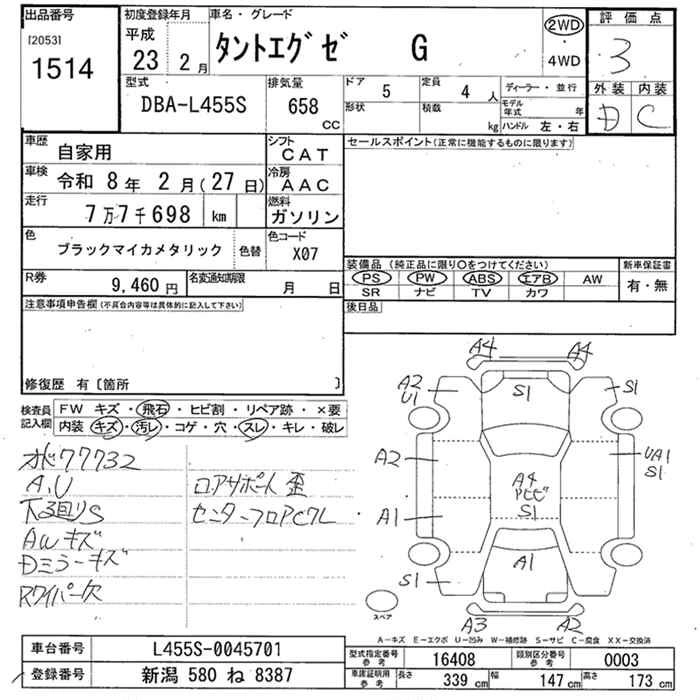 出品番号
[2053]
1514
初度登録年月
平成
23年 2月
車名・グレード
タントエグゼ G
2WD
・
4WD
評価点
3
外装 内装
D C
型式
DBA-L455S
排気量
658
CC
ドア 5
形状
定員 4 人
積載 kg
ディーラー・並行
モデル年式 年
ハンドル 左・右
車歴
自家用
シフト
CAT
セールスポイント(正常に機能するものに限ります)
車検
令和 8年 2月(27日)
冷房
AAC
走行
7万7千698 km
燃料
ガソリン
色
ブラックマイカメタリック
色替
色コード
X07
装備品 (純正品に限り○をつけてください)
新車保証書
PS PW ABS エアB AW
SR ナビ TV カワ
有・無
R券
9,460 円
名変通知期限
月 日
後日品
注意事項申告欄(不具合内容等は具体的に記入して下さい)
修復歴 有〔箇所 〕
検査員
記入欄
FW キズ・飛石・ヒビ割・リペア跡・×要
内装 キズ・汚レ・コゲ・穴・スレ・キレ・破レ
77732
A,U
下廻りS
AWキズ
Dミラーキズ
Rワイパー欠
ロアサポート歪
センターフロアCワレ
A4 A4
A2
U1
S1
S1
A2
UA1
S1
A4
アビビ
S1
A1
S1
A1
スペア
A3 A2
A-キズ E-エクボ U-凹み W-補修跡 S-サビ C-腐食 XX-交換済
車台番号
L455S-0045701
登録番号
新潟 580 ね 8387
型式指定番号
参考
16408
類別区分番号
参考
0003
車庫証明用
参考
長さ 339 cm 幅 147 cm 高さ 173 cm